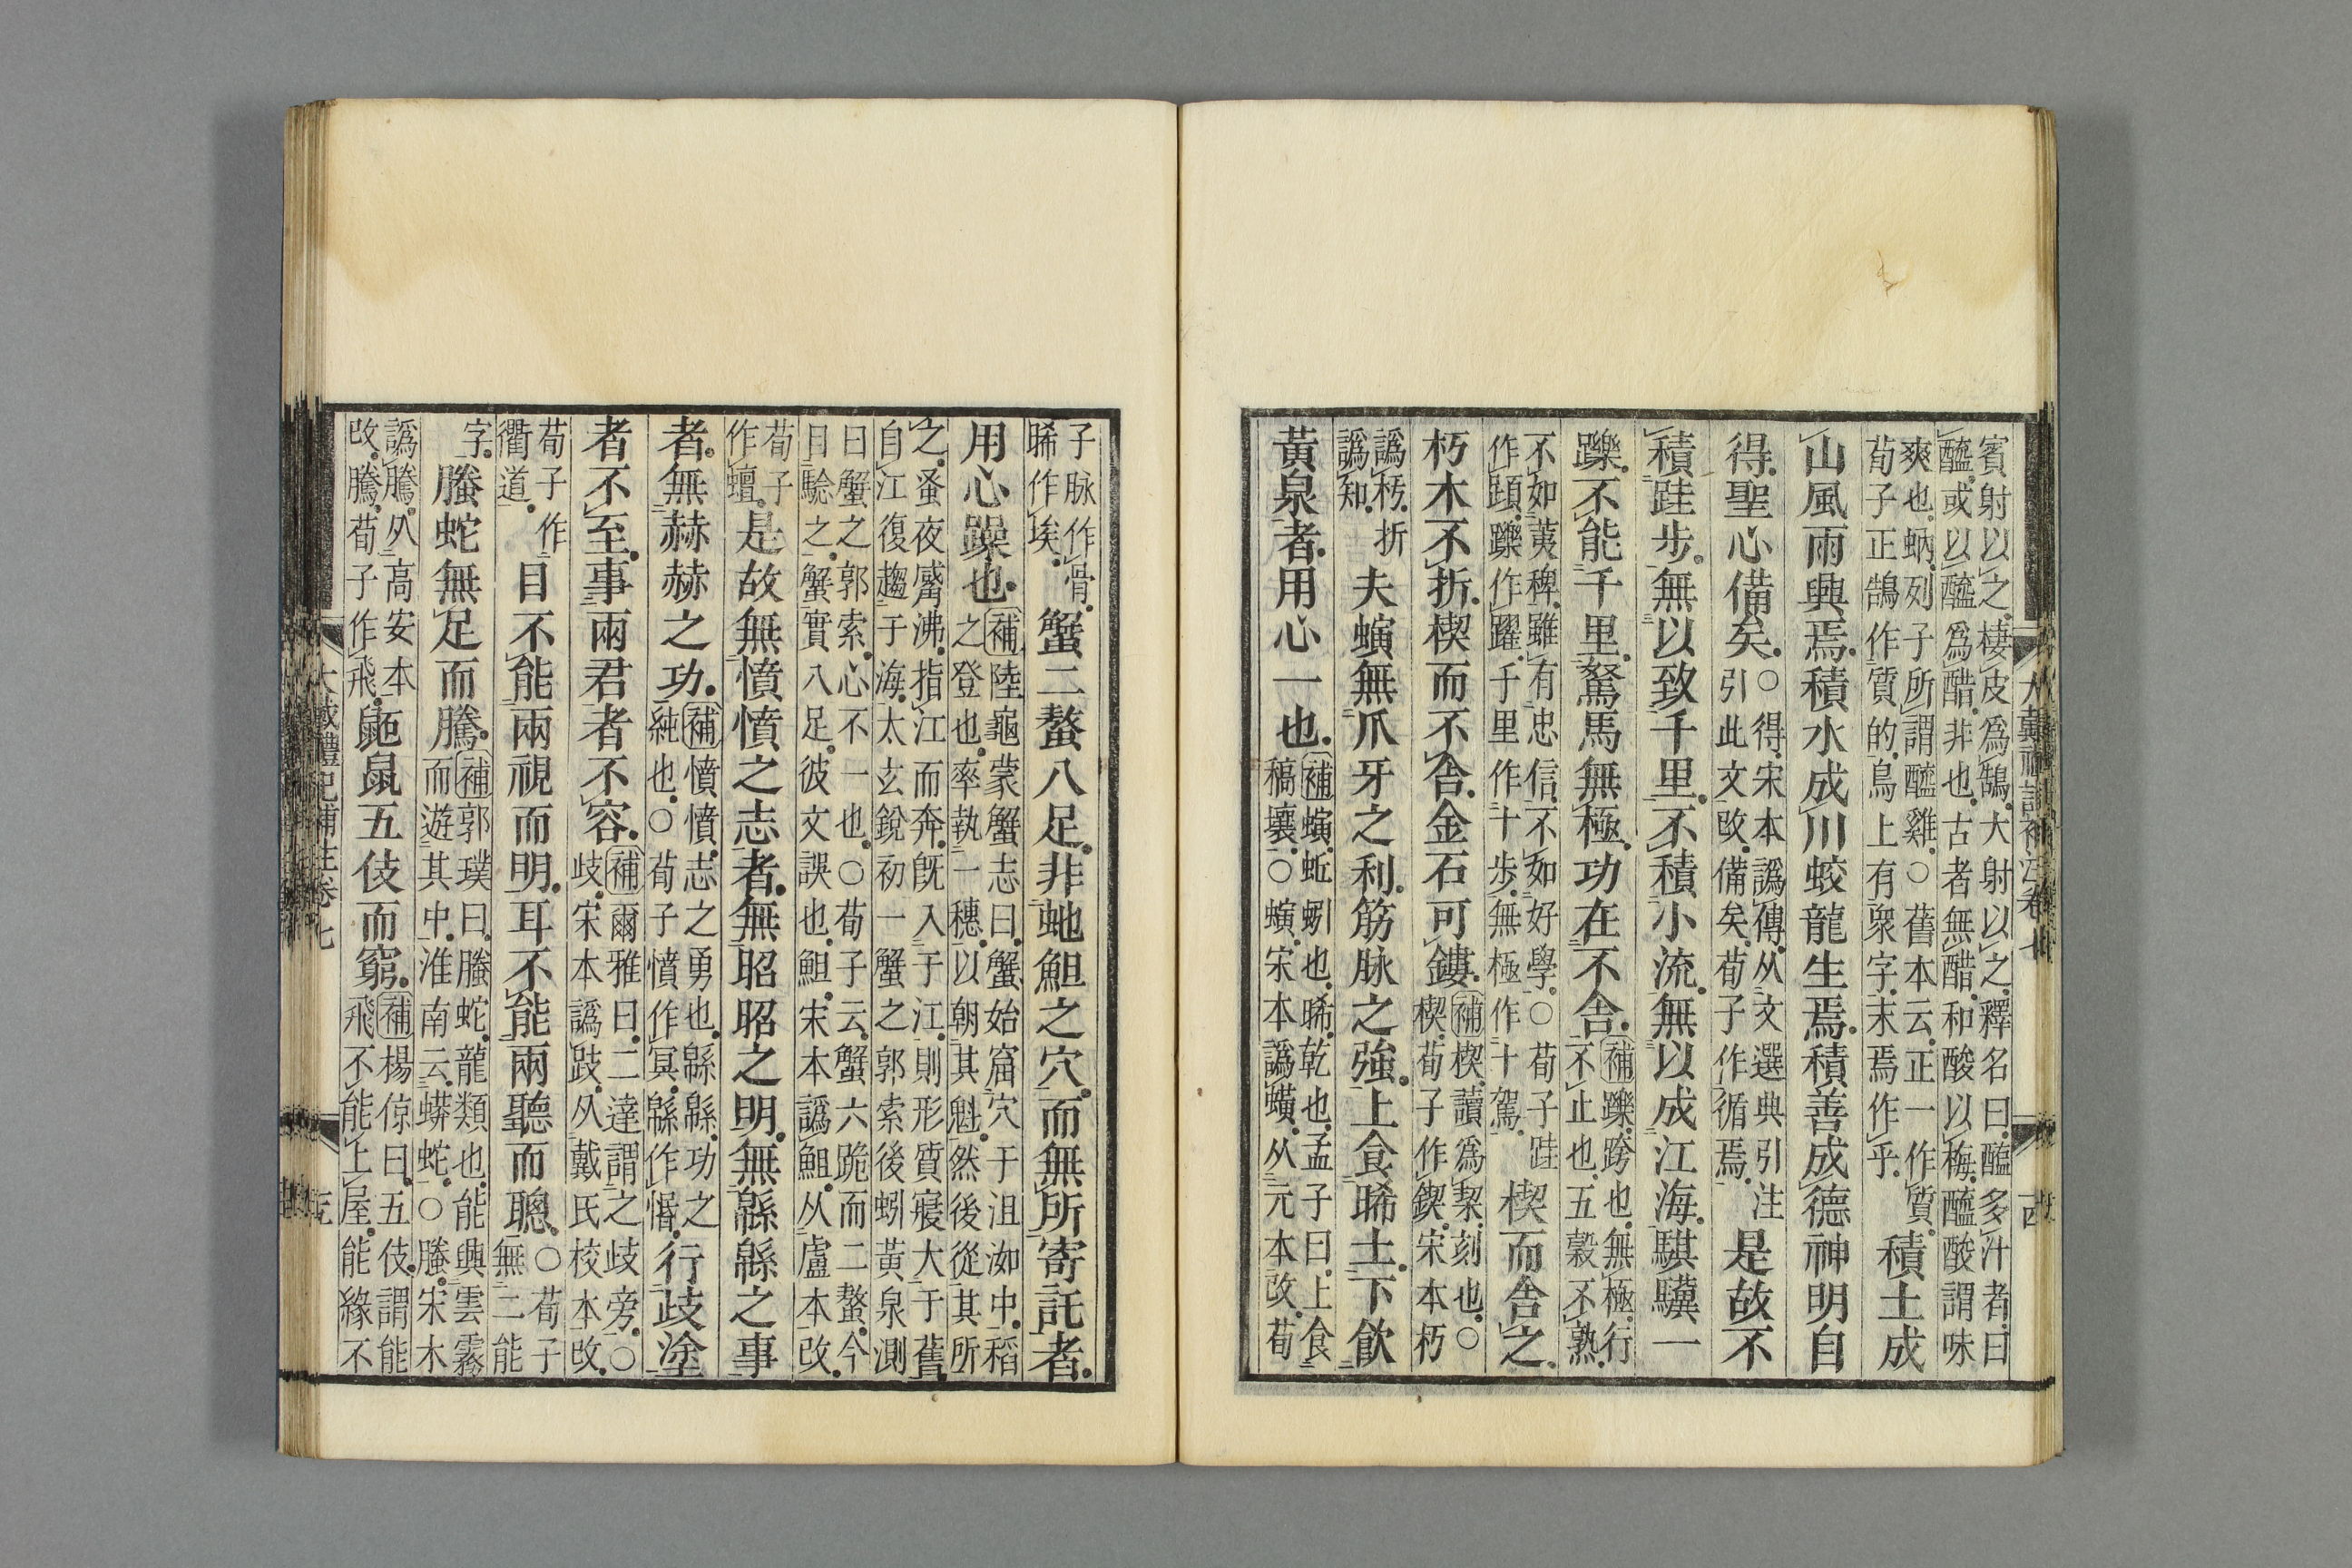 賓射以之棲皮爲鵠大射以之釋名曰醯多汁者曰
醯或以醯爲醋非也古者無醋和酸以梅醯酸謂味
爽也蚋列子所謂醯雞○舊本云正一作質
荀子正鵠作質的鳥上有衆字末焉作乎
積土成
山風雨興焉積水成川蛟龍生焉積善成德神明自
得聖心備矣
○得宋本譌傳从文選典引注
引此文改備矣荀子作循焉
是故不
積跬步無以致千里不積小流無以成江海騏驥一
躒不能千里駑馬無極功在不舍
補躒跨也無極行
不止也五穀不熟
不如荑稗雖有忠信不如好學○荀子跬
作頭躒作躍千里作十步無極作十駕
楔而舍之
朽木不折楔而不舍金石可鏤
補楔讀爲契刻也○
楔荀子作鍥宋本朽
譌杇折
譌知
夫螾無爪牙之利筋脉之強上食晞土下飮
黃泉者用心一也
補螾蚯蚓也晞乾也孟子曰上食
稿壤○螾宋本譌蟥从元本改荀
子脉作骨
晞作埃
蟹二螯八足非虵䱇之穴而無所寄託者
用心躁也
補陸龜蒙蟹志曰蟹始窟穴于沮洳中稻
之登也率執一穗以朝其魁然後從其所
之蚤夜觱沸指江而奔旣入于江則形質寢大于舊
自江復趨于海太玄銳初一蟹之郭索後蚓黃泉測
曰蟹之郭索心不一也○荀子云蟹六跪而二螯今
目驗之蟹實八足彼文誤也䱇宋本譌䱉从盧本改
荀子
作蟺
是故無憤憤之志者無昭昭之明無緜緜之事
者無赫赫之功
補憤憤志之勇也緜緜功之
純也○荀子憤作冥緜作惛
行歧塗
者不至事兩君者不容
補爾雅曰二達謂之歧旁○
歧宋本譌跂从戴氏校本改
荀子作
衢道
目不能兩視而明耳不能兩聽而聰
○荀子
無二能
字
螣蛇無足而騰
補郭璞曰螣蛇龍類也能興雲霧
而遊其中淮南云蟒蛇○螣宋本
譌騰从高安本
改騰荀子作飛
鼫鼠五伎而窮
補楊倞曰五伎謂能
飛不能上屋能緣不